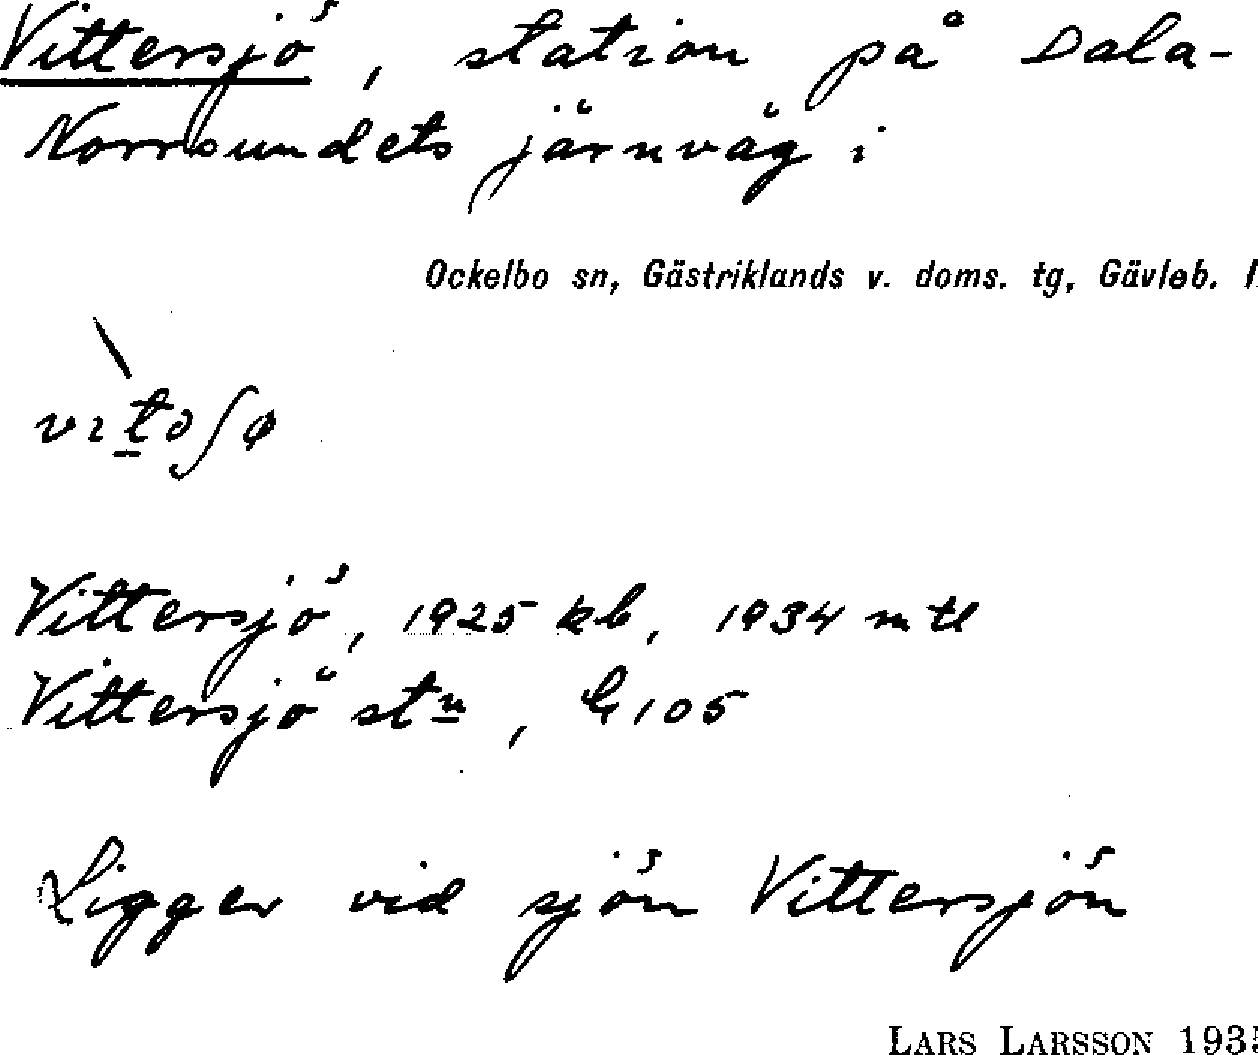 Vittersjö, station på Dala-
Norrsundets järnväg i
Ockelbo sn, Gästriklands v. doms. tg, Gävleb. l
vɪtəʃø
Vittersjö, 1925 kb, 1934 mtl
Vittersjö stn, G105
Ligger vid sjön Vittersjön
LARS LARSSON 1935